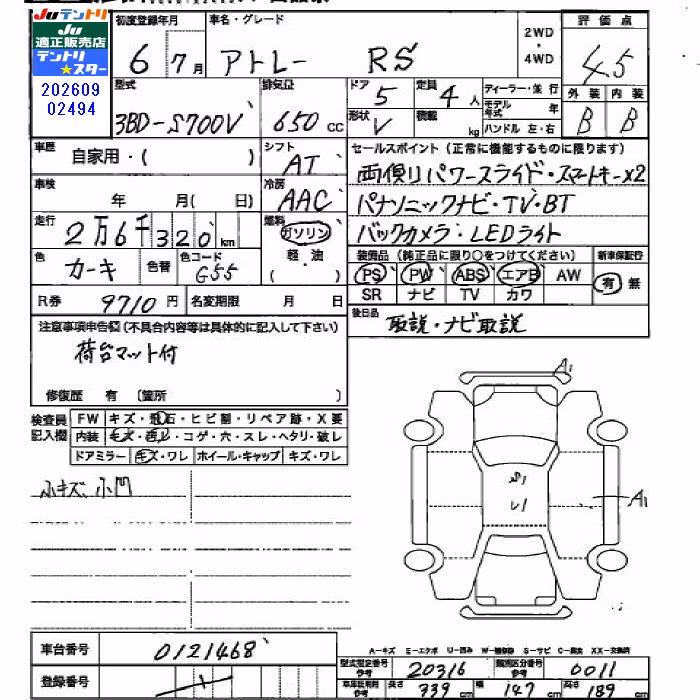 Juテントリ
Ju
適正販売店
テントリ
★スター
202609
02494
初度登録年月
6年7月
車名・グレード
アトレー RS
2WD
・
4WD
評価点
4.5
型式
3BD-S700V
排気量
650cc
ドア
5
定員
4人
ディーラー・並行
モデル年式 年
形状
V
積載
kg
ハンドル 左・右
外装 内装
B B
車歴
自家用・( )
シフト
AT
セールスポイント(正常に機能するものに限ります)
両側リパワースライド・スマートキーx2
パナソニックナビ・TV・BT
バックカメラ・LEDライト
車検
年 月( 日)
冷房
AAC
走行
2万6千320km
燃料
ガソリン
軽・油
( )
色
カーキ
色替
色コード
G55
装備品(純正品に限り○をつけてください)
新車保証行
PS PW ABS エアB AW
有 無
SR ナビ TV カワ
R券
9710円
名変期限 月 日
後日品
取説・ナビ取説
注意事項申告欄(不具合内容等は具体的に記入して下さい)
荷台マット付
修復歴 有 〔箇所 〕
検査員
記入欄
FW キズ・飛石・ヒビ割・リペア跡・X要
内装 キズ・汚レ・コゲ・穴・スレ・ヘタリ・破レ
ドアミラー キズ・ワレ ホイール・キャップ キズ・ワレ
小キズ、小凹
A1
A1
S1
レ1
車台番号
0121468
登録番号
A-キズ E-エクボ U-凹み W-補修跡 S-サビ C-腐食 XX-交換済
型式指定番号
参考
20316
類別区分番号
参考
0011
車体証明用
参考
長さ
339cm
幅
147cm
高さ
189cm